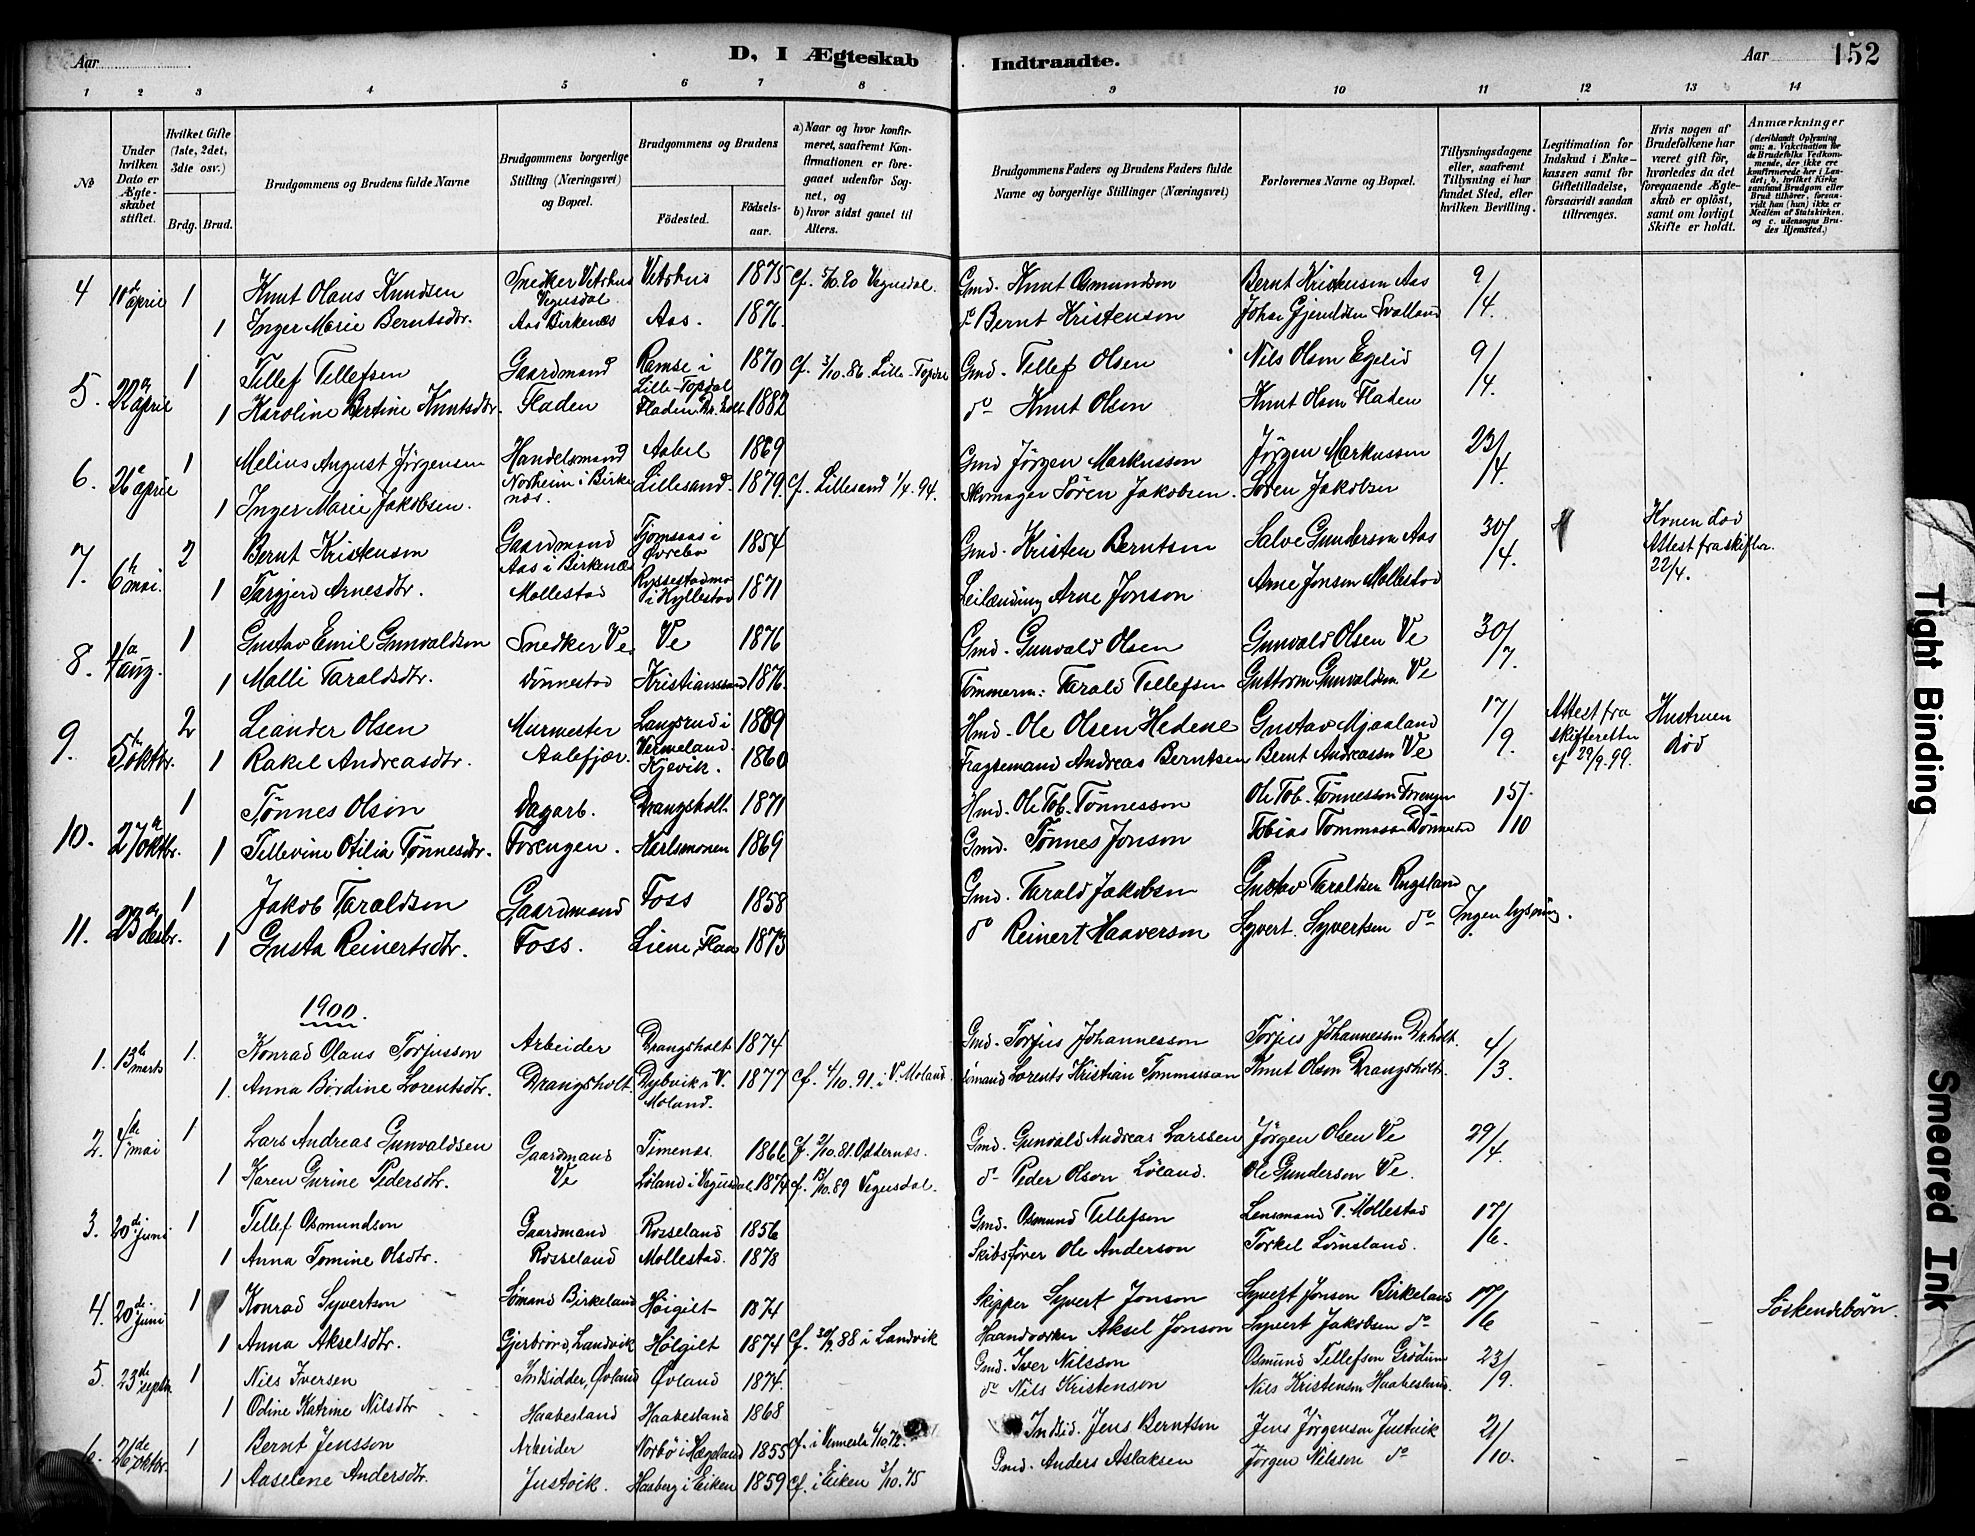 Aar
D, I Ægteskab Indtraadte.
Aar
152
1 2 3 4 5 6 7 8 9 10 11 12 13 14
№
Under hvilken Dato er Ægteskabet stiftet.
Hvilket Gifte (1ste, 2det, 3die osv.)
Brdg. Brud.
Brudgommens og Brudens fulde Navne
Brudgommens borgerlige Stilling (Næringsvei) og Bopæl.
Brudgommens og Brudens
Fødested.
Fødselsaar.
a) Naar og hvor konfirmeret, saafremt Konfirmationen er foregaaet udenfor Sognet, og
b) hvor sidst gaaet til Alters.
Brudgommens Faders og Brudens Faders fulde Navne og borgerlige Stillinger (Næringsvei)
Forlovernes Navne og Bopæl.
Tillysningsdagene eller, saafremt Tillysning ei har fundet Sted, efter hvilken Bevilling.
Legitimation for Indskud i Enkekassen samt for Giftetilladelse, forsaavidt saadan tiltrænges.
Hvis nogen af Brudefolkene har været gift för, hvorledes da det foregaaende Ægteskab er oplöst, samt om lovligt Skifte er holdt.
Anmærkninger (deriblandt Oplysning om: a. Vakcination for de Brudefolks Vedkommende, der ikke ere konfirmerede her i Landet; b. hvilket Kirkesamfund Brudgom eller Brud tilhörer, forsaavidt han (hun) ikke er Medlem af Statskirken. og c. udensogns Brudes Hjemsted.)
4 11 april 1 Knut Olaus Knudsen Snedker Vetrhus Vegusdal Vetrhus 1875 Cf. 5/10.80 Vegusdal. Gmd. Knut Osmundson Bernt Kristensen Aas 9/4.
1 Inger Marie Berntsdtr. Aas Birkenæs Aas. 1876. do Bernt Kristenson Johan Gjeruldsen Svaland
5. 22 april 1 Tellef Tellefsen Gaardmand Ramse i Lille-Topdal 1870 Cf. 3/10.86. Lille-Topdal Gmd. Tellef Olsen Nils Olsen Egelid 9/4.
1 Karoline Bertine Knutsdtr. Fladen Fladen Dr.holt 1882 do Knut Olson Knut Olson Fladen
6. 26 april 1 Melius August Jörgensen Handelsmand Aabel 1869 Gmd Jörgen Markusson Jörgen Markusson 23/4.
1 Inger Marie Jakobsen. Norheim i Birkenæs. Lillesand. 1879. Cf. Lillesand 1/4. 94. Skomager Sören Jakobsen. Sören Jakobsen
7. 6te mai. 2 Bernt Kristensen Gaardmand Aas i Birkenæs Tjomsaas i Øvrebø 1854 Gmd. Kristen Berntsen Salve Gunderson Aas 30/4. Konen död Attest fra skiftr. 22/4.
1 Targjerd Arnesdtr. Mollestad Ryssestadmo i Hyllestad 1871 Leilænding Arne Jonson Arne Jonson Mollestad
8. 4 aug. 1 Gustav Emil Gunvaldson Snedker Ve Ve 1876 Gmd. Gunvald Olsen Gunvald Olsen Ve 30/7.
1 Malli Taraldsdtr. Dönnestad Kristianssand 1876. Tömmerm: Tarald Tellefsen Guttorm Gunvaldsen Ve
9. 5 oktbr. 2 Leander Olsen Murmester Langsrud i Vermeland. 1889 Hmd. Ole Olsen Hedene Gustav Mjaaland 17/9. Attest fra skifteretten cf 29/9.99. Hustruen död
1 Rakel Andreasdtr. Aalefjær. Kjevik. 1860 Fragtemand Andreas Berntsen Bernt Andreassen Ve
10. 27 oktbr. 1 Tønnes Olson Dagarb. Drangsholt 1871 Hmd. Ole Tob. Tønnesson Ole Tob. Tønnesson Torengen 15/10
1 Tellevine Otilia Tønnesdtr. Torengen. Karlsmonen 1869 Gmd. Tønnes Jonson Tobias Tommasson Dönnestad
11. 23 desbr. 1 Jakob Taraldson Gaardmand Foss 1858 Gmd. Tarald Jakobsen Gustav Taraldsen Rugsland Ingen lysning.
1 Gusta Reinertsdtr. Foss. Liene, Flaa 1873 do Reinert Haaverson Syvert Syvertsen do
1900.
1. 13 marts 1. Konrad Olaus Torjusson Arbeider Drangsholt 1874 Gmd. Torjus Johannesson Torjus Johannesson Dr.holt. 4/3.
1. Anna Bördine Lorentsdtr. Drangsholt Dybvik i V. Moland. 1877 Cf. 4/10.91. i V. Moland. Sömand Lorents Kristian Tommasson Knut Olson Drangsholt.
2. 4de mai 1 Lars Andreas Gunvaldsen Gaardmand Timenæs. 1866 Cf. 2/10.81. Oddernæs. Gmd. Gunvald Andreas Larssen Jörgen Olsen Ve 29/4.
1 Karen Gurine Pedersdtr. Ve Löland i Vegusdal. 1874 cf. 13/10.89 Vegusdal. do Peder Olson Löland. Ole Gunderson Ve.
3. 20de juni 1 Tellef Osmundson Gaardmand Rosseland 1856 Gmd. Osmund Tellefson Lensmand T. Mollestad 17/6.
1 Anna Tomine Olsdtr. Rosseland Mollestad. 1878 Skibsfører Ole Anderson Torkel Lömsland.
4. 20de juni 1 Konrad Syvertson Sömand Birkeland Höigilt 1874 Skipper Syvert Jonson Syvert Jonson Birkeland 17/6 Söskendebörn.
1 Anna Akselsdtr. Gjerbrönd, Landvik Hölgilt 1874 Cf. 30/9.88 i Landvik Haandværker Aksel Jonson Syvert Jakobsen do
5. 23de septr. 1 Nils Iversen Indsidder, Øvland Øvland 1874. Gmd. Iver Nilsson Osmund Tellefson Grödum 23/9.
1 Odine Katrine Nilsdtr Haabesland Haabesland 1868 do Nils Kristenson Nils Kristensen Haabesland.
6. 26de oktbr. 1 Bernt Jensson Arbeider Norbö i Hægeland 1855 Cf. i Vennesla 6/10.72. Indsid. Jens Berntson Jens Jörgenson Justvik 21/10.
1 Aaselene Andersdtr. Justvik. Haaberg i Eiken 1859 Cf. i Eiken 3/10.75 Gmd. Anders Aslaksen Jörgen Nilsson do
Tight Binding
Smeared Ink